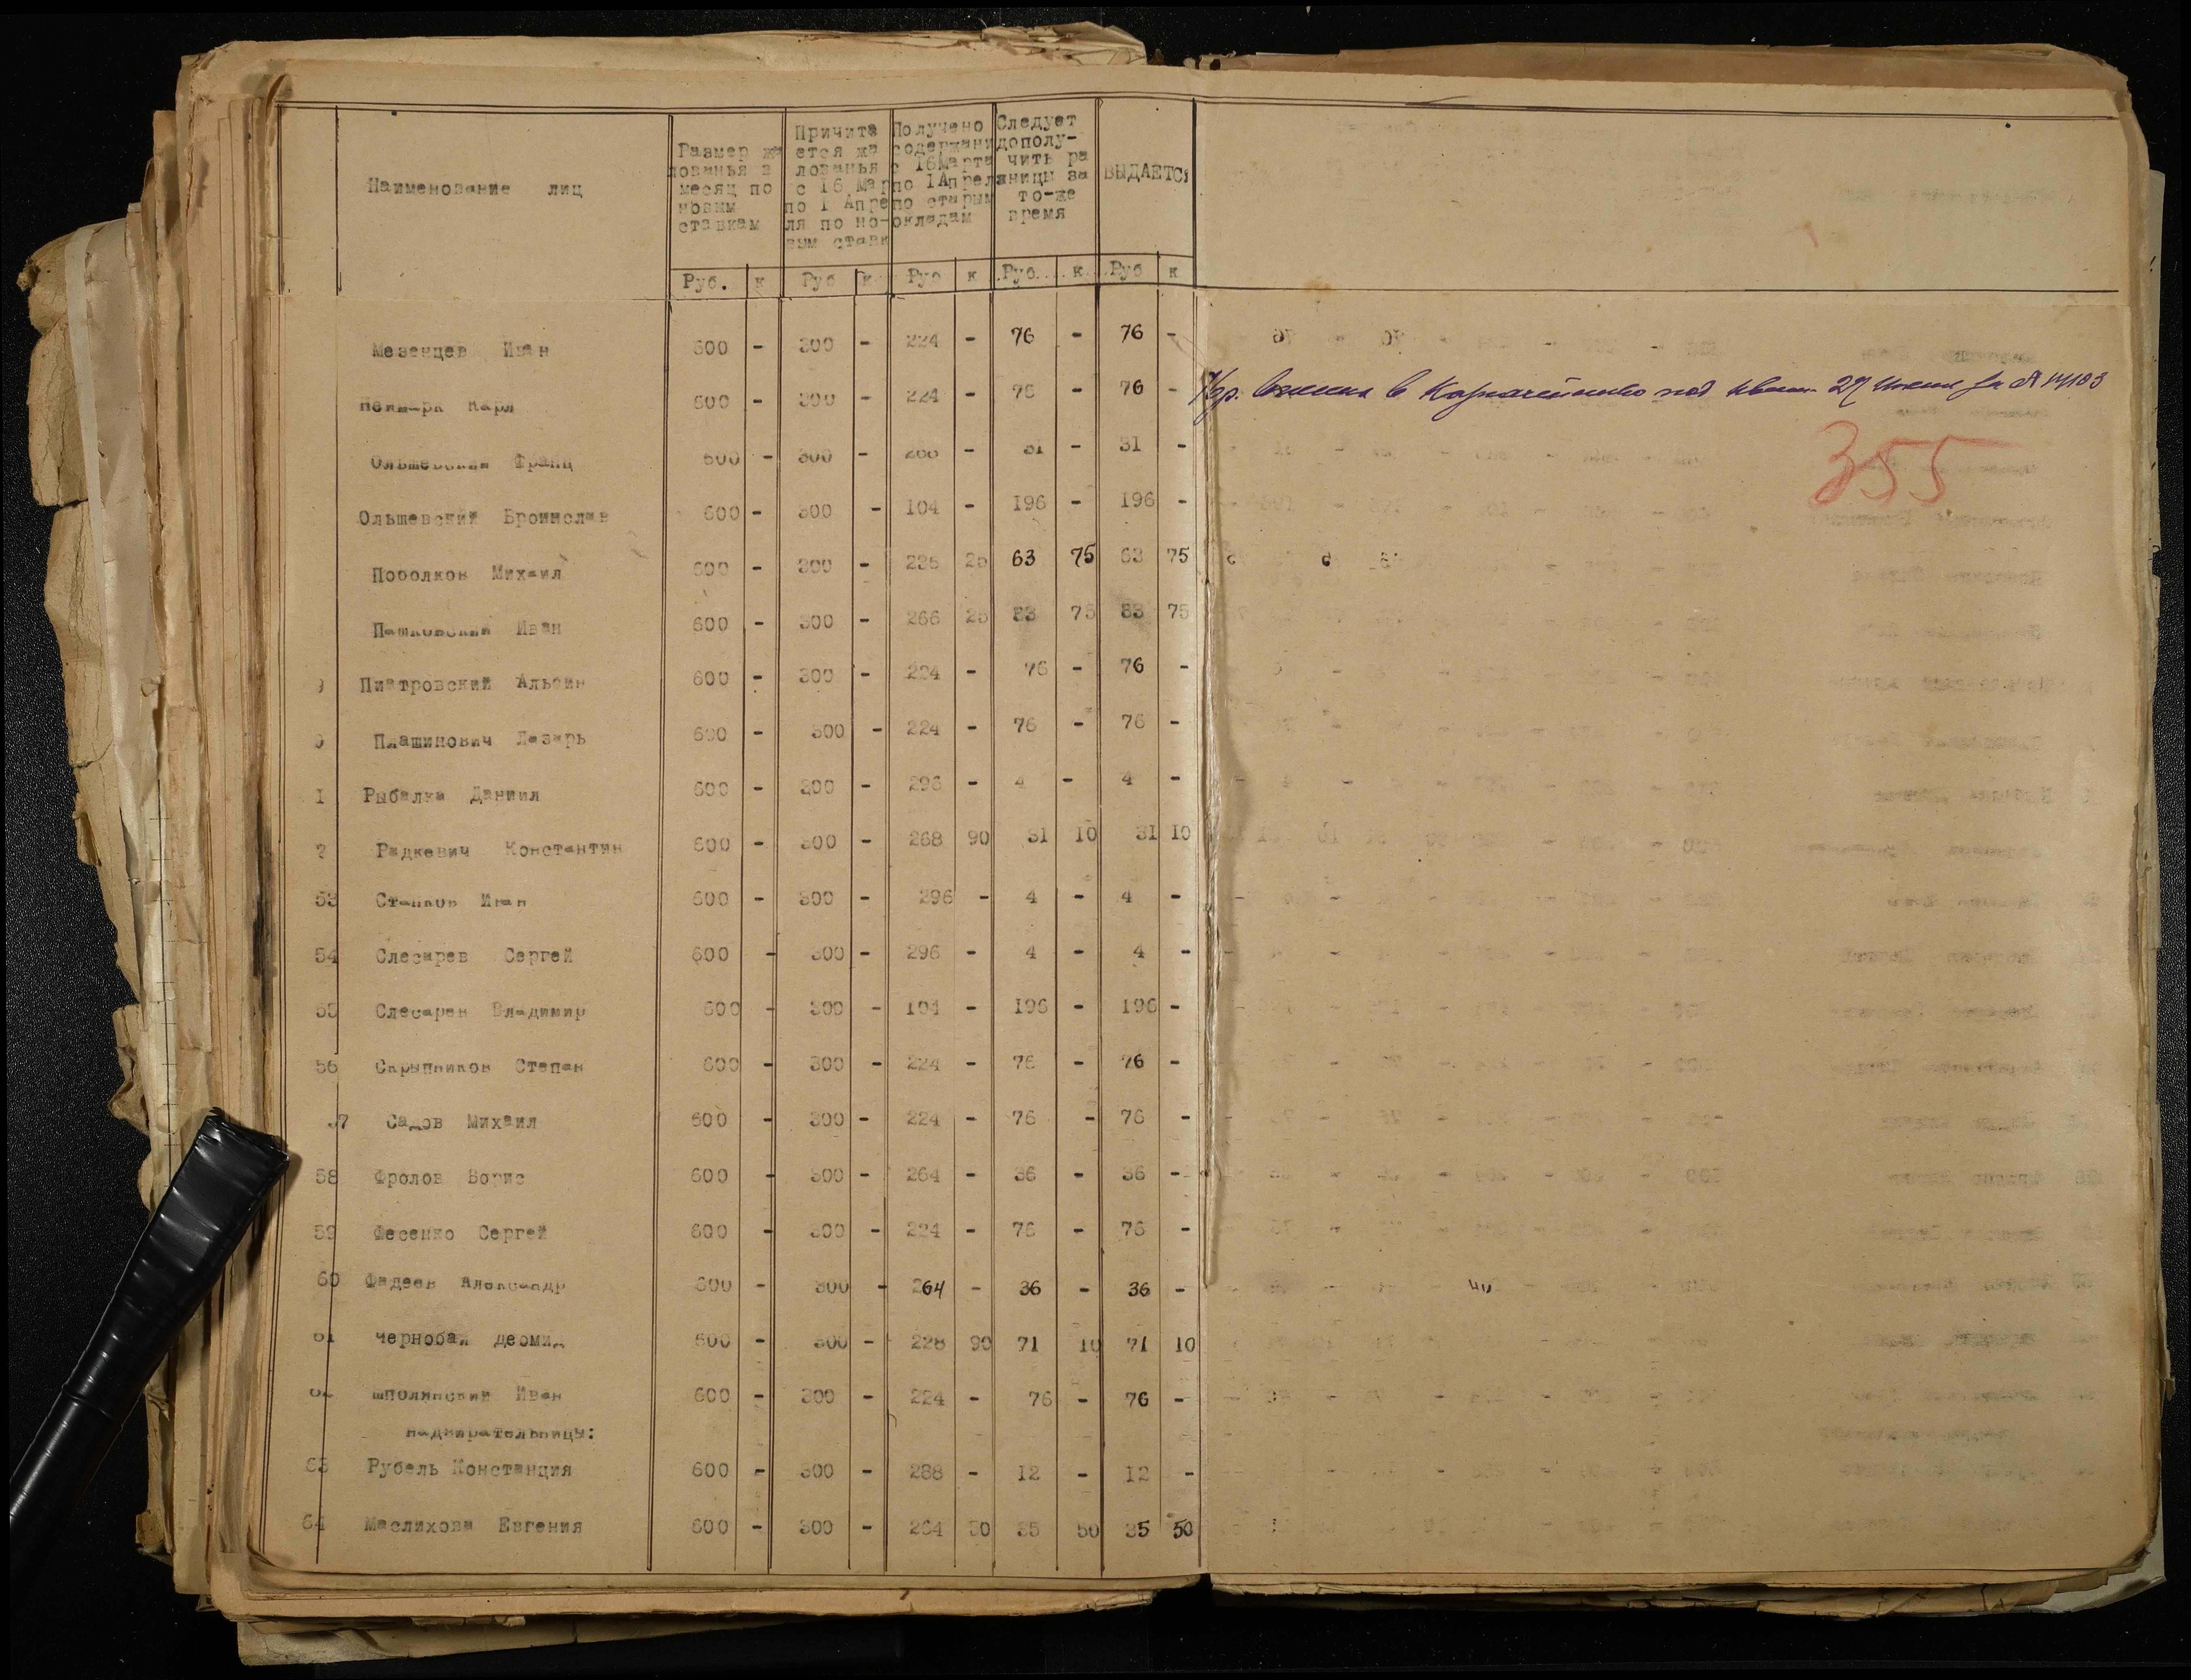 Наименование лиц
Размер жа
лованья в
месяц по
новым
ставкам
Причита
ется жа
лованья
с 16 Мар
по 1 Апре
ля по но-
вым ставк
Получено
содержани
с 16 Марта
по 1 Апреля
по старым
окладам
Следует
дополу-
чить ра
зницы за
то-же
время
ВЫДАЕТСЯ
Руб. к Руб к Руб к Руб. к Руб к
Мезенцев Иван 600 - 300 - 224 - 76 - 76 -
Неймарк Карл 600 - 300 - 224 - 76 - 76 -
в Казначейство под 27 за № 14103
355
Ольшевский Франц 600 - 300 - 31 - 31 -
Ольшевский Бронислав 600 - 300 - 104 - 196 - 196 -
Михаил 600 - 300 - 25 63 75 63 75
Пашковский Иван 600 - 300 - 266 25 83 75 83 75
Пиатровский Альбин 600 - 300 - 224 - 76 - 76 -
Плашинович Лазарь 600 - 300 - 224 - 76 - 76 -
1 Рыбалка Даниил 600 - 300 - 296 - 4 - 4 -
2 Радкевич Константин 600 - 300 - 268 90 31 10 31 10
53 Станков Иван 600 - 300 - 296 - 4 - 4 -
54 Слесарев Сергей 600 - 300 - 296 - 4 - 4 -
55 Слесарев Владимир 600 - 300 - 104 - 196 - 196 -
56 Скрыпников Степан 600 - 300 - 224 - 76 - 76 -
57 Садов Михаил 600 - 300 - 224 - 76 - 76 -
58 Фролов Борис 600 - 300 - 264 - 36 - 36 -
59 Фесенко Сергей 600 - 300 - 224 - 76 - 76 -
60 Фадеев Александр 600 - 300 - 264 - 36 - 36 -
61 Чернобай Деомид 600 - 300 - 228 90 71 10 71 10
62 Шполянский Иван 600 - 300 - 224 - 76 - 76 -
надзирательницы:
63 Рубель Констанция 600 - 300 - 288 - 12 - 12 -
64 Маслихова Евгения 600 - 300 - 264 50 35 50 35 50